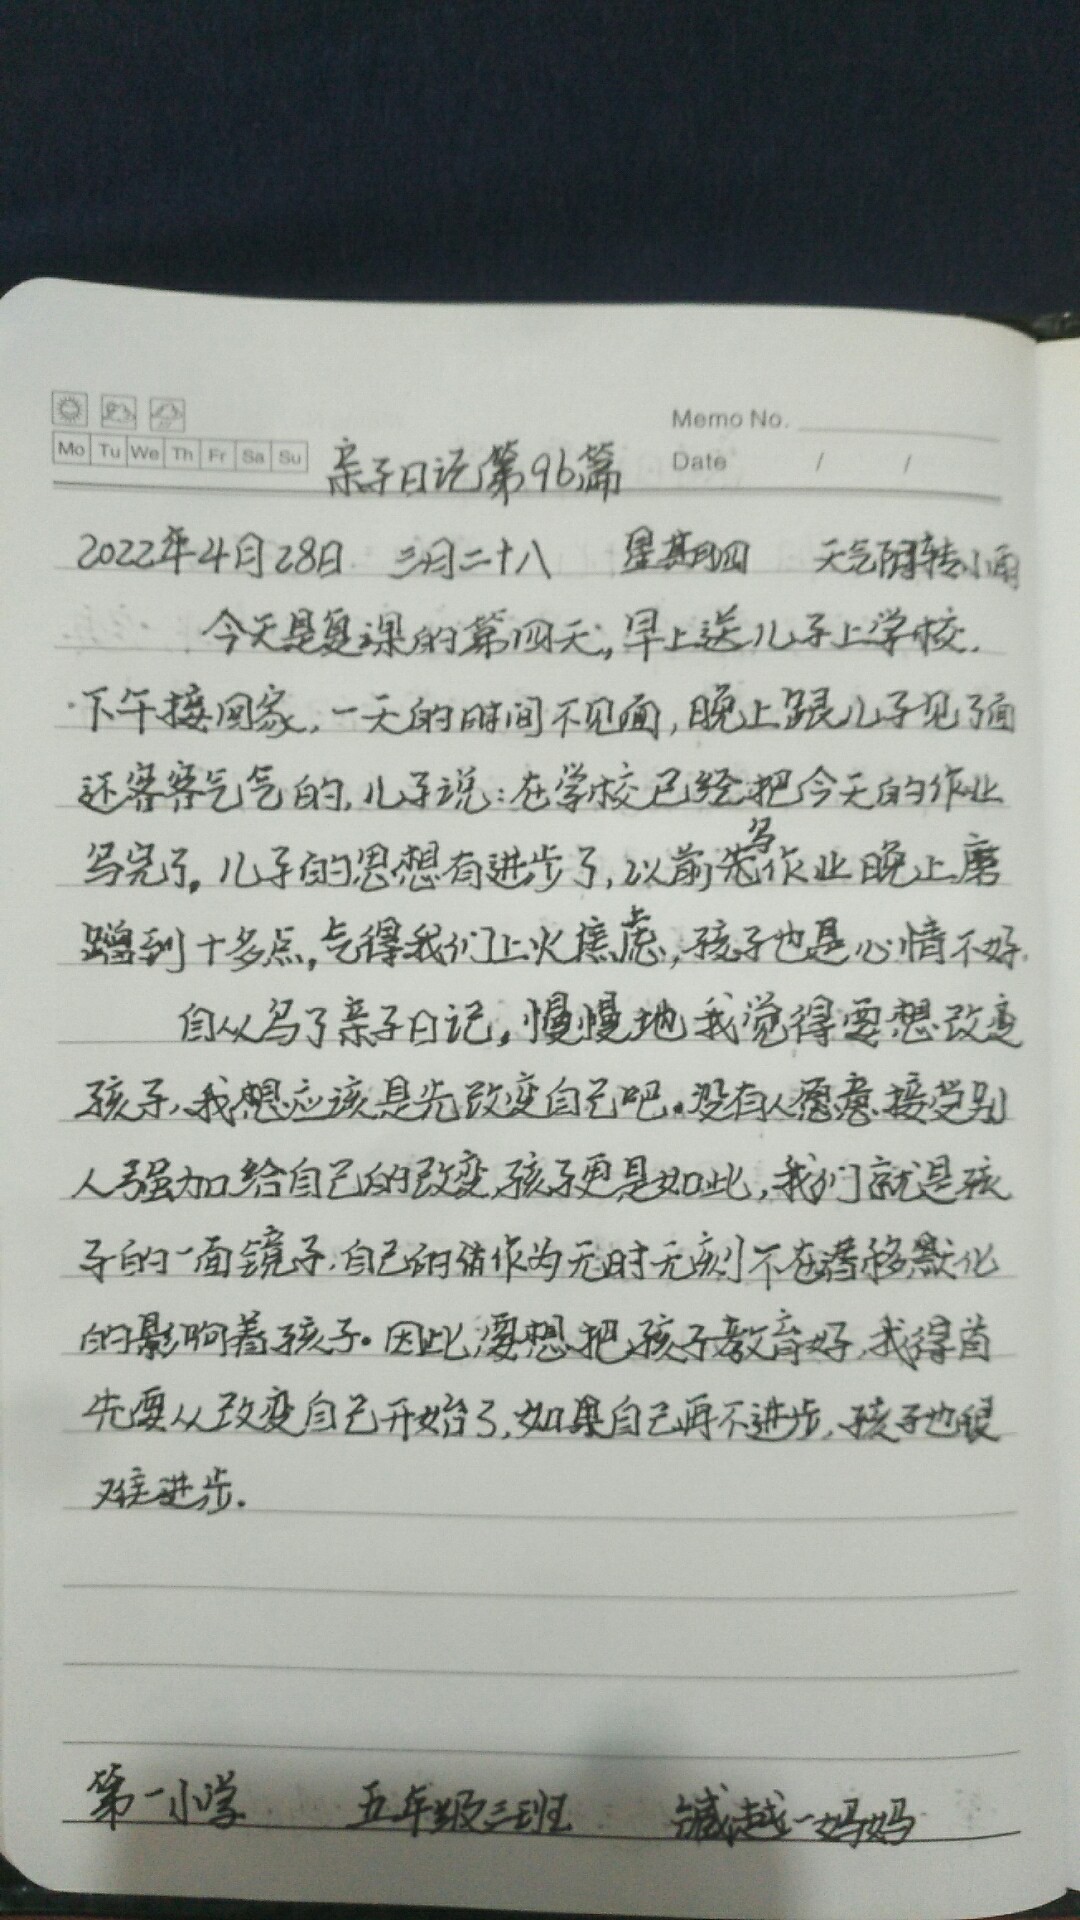 Memo No.
Mo Tu We Th Fr Sa Su
Date / /
亲子日记第96篇
2022年4月28日 三月二十八 星期四 天气阴转小雨
今天是复课的第四天,早上送儿子上学校.
下午接回家,一天的时间不见面,晚上跟儿子见了面
还客客气气的,儿子说:在学校已经把今天的作业
写完了。儿子的思想有进步了,以前先写作业晚上磨
蹭到十多点,气得我们上火焦虑,孩子也是心情不好.
自从写了亲子日记,慢慢地我觉得要想改变
孩子、我想应该是先改变自己吧。没有人愿意接受别
人强加给自己的改变,孩子更是如此,我们就是孩
子的一面镜子,自己的作为无时无刻不在潜移默化
的影响着孩子。因此,要想把孩子教育好,我得首
先要从改变自己开始了,如果自己再不进步,孩子也很
难进步.
第一小学 五年级三班 越一妈妈